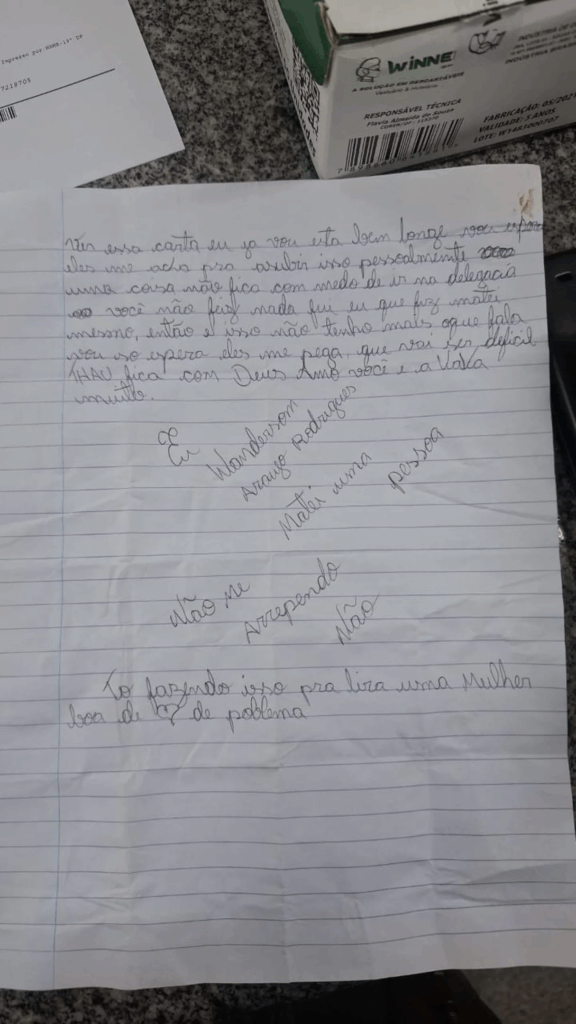 Impresso por:
7218709
WINNER
A SOLUÇÃO EM DESCARTÁVEIS
RESPONSÁVEL TÉCNICA
Flavia Almeida de Souza
FABRICAÇÃO: 05/202
VALIDADE: 5 ANOS
LOTE: W1481000707
INDÚSTRIA BRAS
essa carta eu ja vou ita bem longe vou
eles me acha pra asubir isso pessoalmente
uma coisa não fica com medo de ir na delegacia
você não feiz nada fui eu que fiz matei
mesmo, então e isso não tenho mais oque fala
vou so espera eles me pega, que vai ser deficil
THAU fica com Deus Amo você e a
muito.
Eu Wanderson
Araujo Rodrigues
Matei uma pessoa
Não me
Arrependo
Não
To fazendo isso pra tira uma Mulher
boa de de poblema